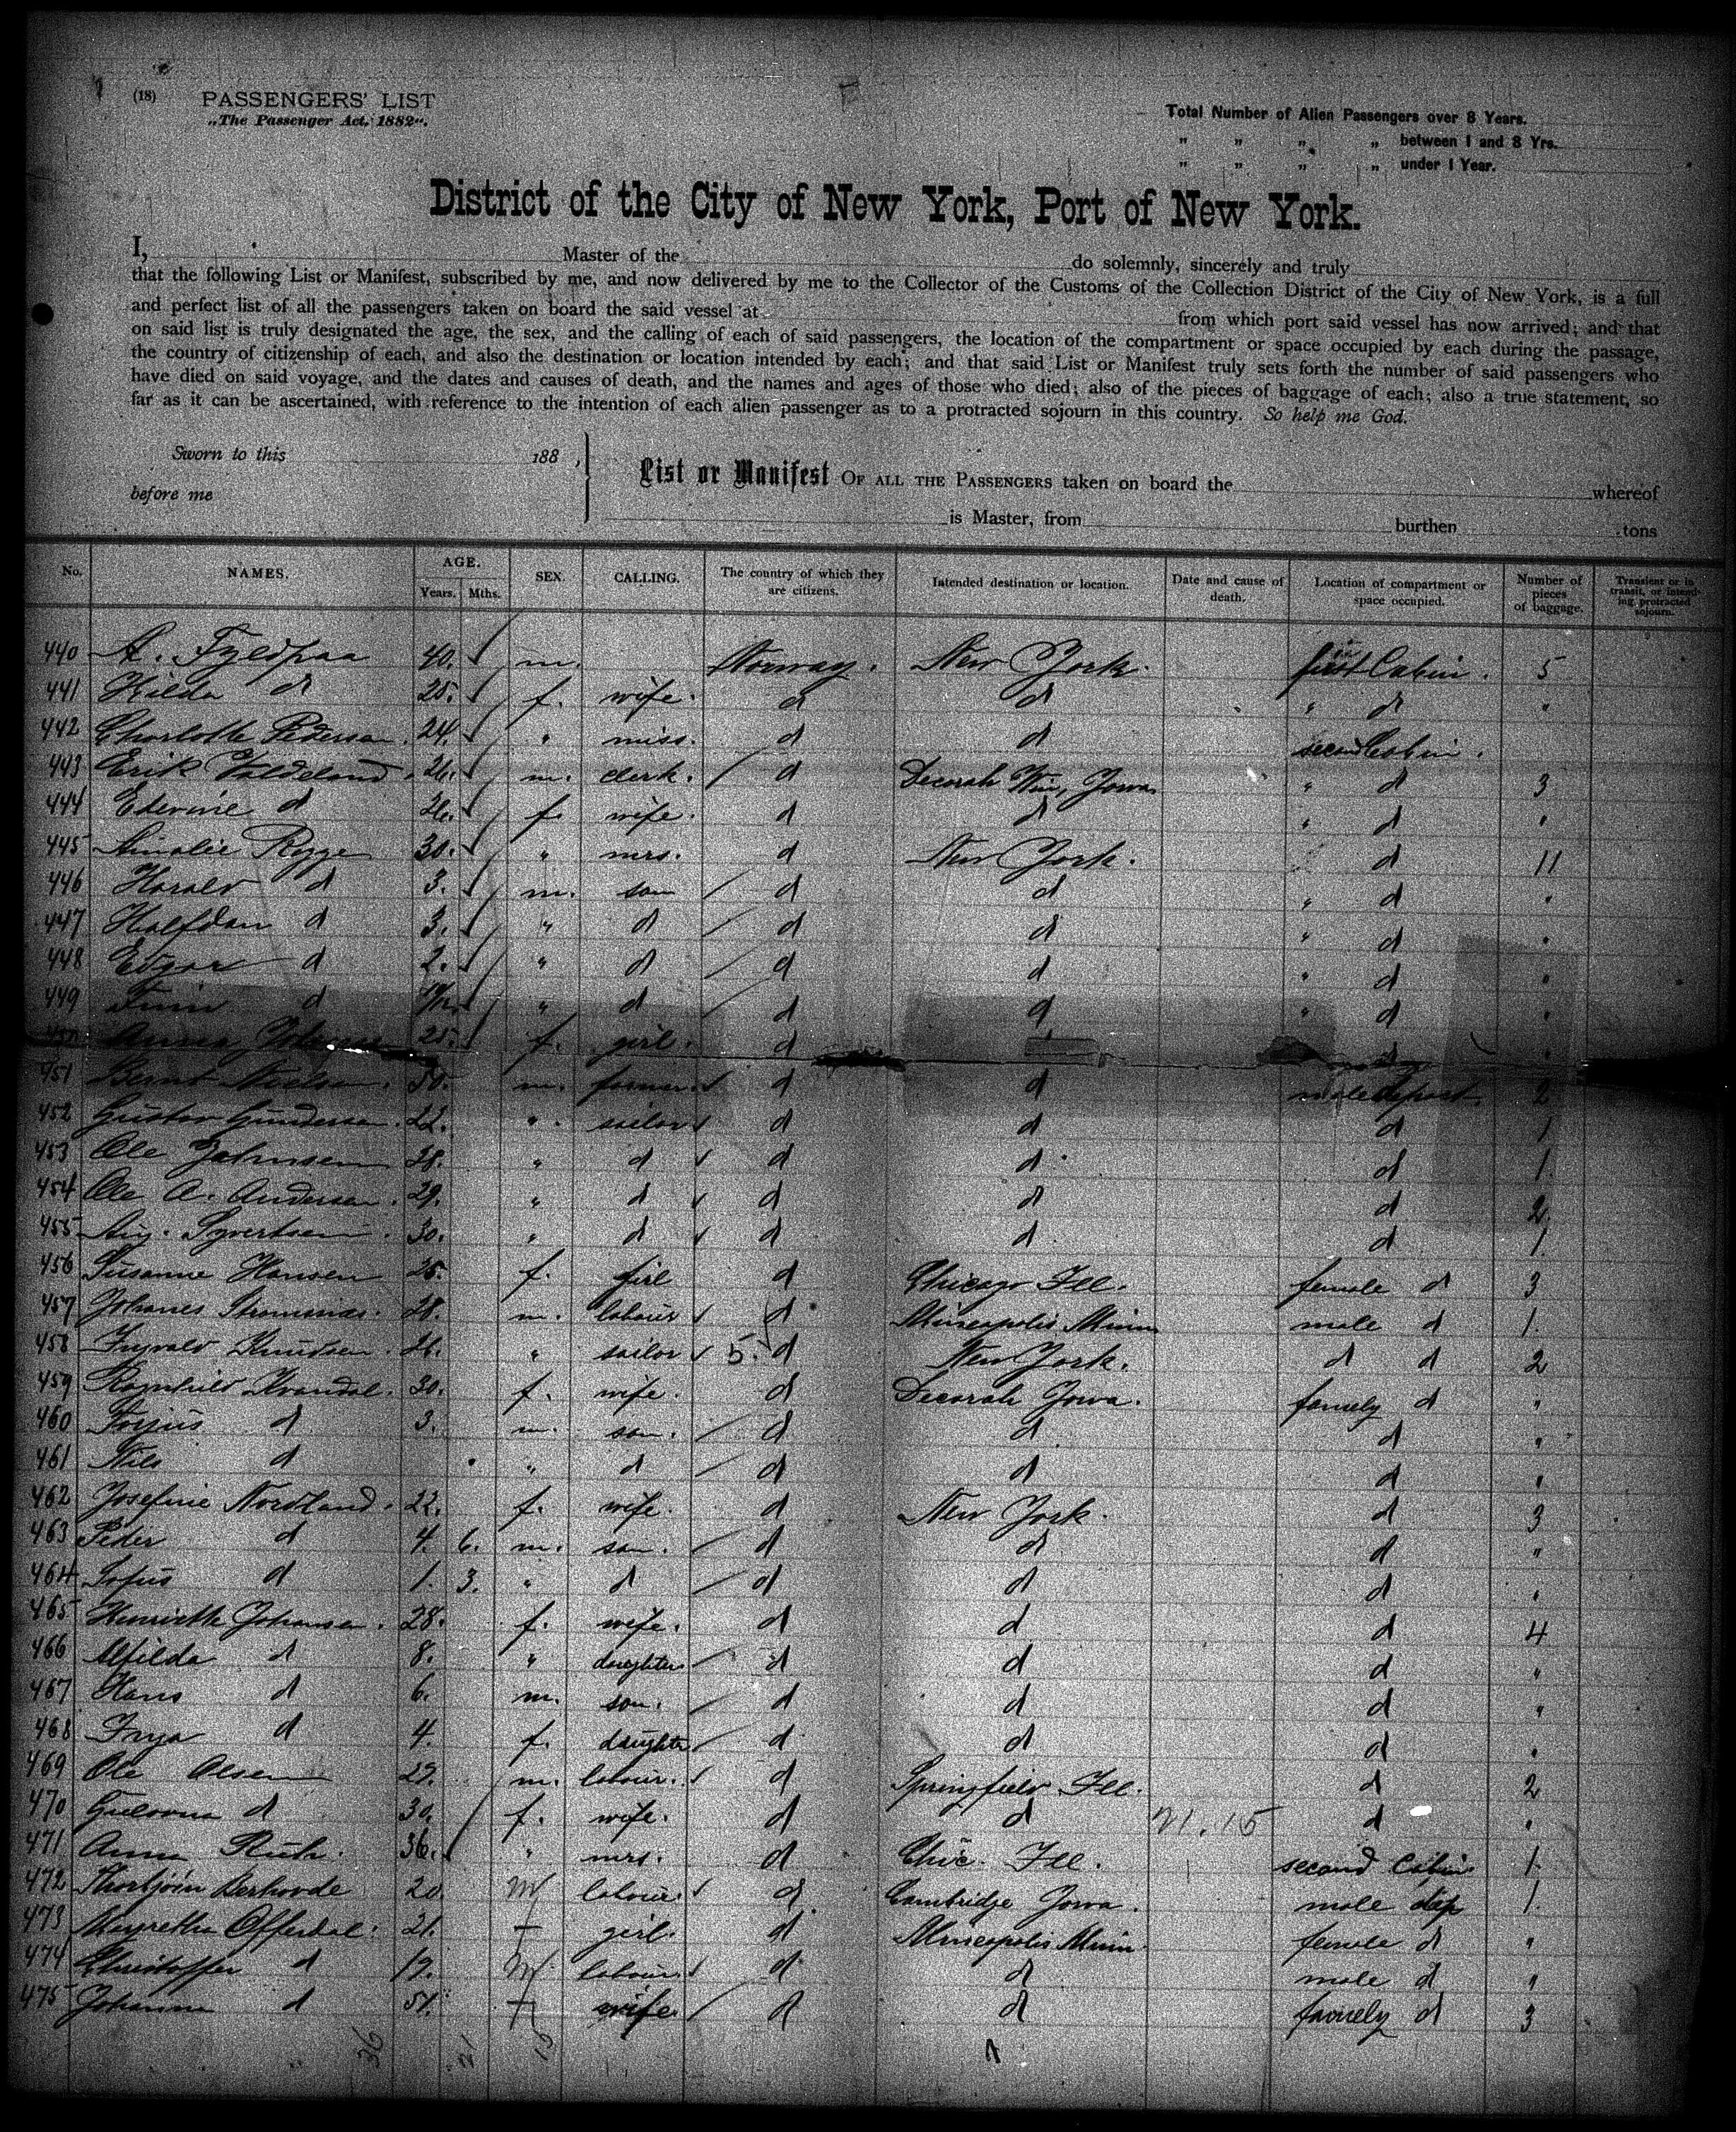 (18) PASSENGERS' LIST
„The Passenger Act. 1882".
Total Number of Alien Passengers over 8 Years.
„ „ „ „ between 1 and 8 Yrs.
„ „ „ „ under 1 Year.
District of the City of New York, Port of New York.
I, Master of the do solemnly, sincerely and truly
that the following List or Manifest, subscribed by me, and now delivered by me to the Collector of the Customs of the Collection District of the City of New York, is a full
and perfect list of all the passengers taken on board the said vessel at from which port said vessel has now arrived; and that
on said list is truly designated the age, the sex, and the calling of each of said passengers, the location of the compartment or space occupied by each during the passage,
the country of citizenship of each, and also the destination or location intended by each; and that said List or Manifest truly sets forth the number of said passengers who
have died on said voyage, and the dates and causes of death, and the names and ages of those who died; also of the pieces of baggage of each; also a true statement, so
far as it can be ascertained, with reference to the intention of each alien passenger as to a protracted sojourn in this country. So help me God.
Sworn to this 188 ,
before me
List or Manifest OF ALL THE PASSENGERS taken on board the whereof
is Master, from burthen tons
No. NAMES. AGE. Years. Mths. SEX. CALLING. The country of which they are citizens. Intended destination or location. Date and cause of death. Location of compartment or space occupied. Number of pieces of baggage. Transient or in transit, or intending protracted sojourn.
440 A. 40. m. Norway. New York. first Cabin. 5
441 Hilda d 25. f. wife. d d " d "
442 Charlotte Pedersen. 24. " miss. d d second Cabin.
443 Erik 26. m. clerk. d Decorah Iowa " d 3
444 d 26. f. wife. d d " d "
445 Amalie Rygge 30. " mrs. d New York. d 11
446 Harald d 3. m. son d d " d "
447 Halfdan d 3. " d d d " d "
448 Edgar d 2. " d d d " d "
449 Finn d " d d d " d "
450 Anna 25. f. girl. d d "
451 Bernt Nielsen. 30. m. farmer d d male depart. 2
452 Gustav Gundersen. 22. " sailor d d d 1
453 Ole 28. " d d d d 1.
454 Ole A. Andersen. 29. " d d d d 2
455 Aug. Syvertsen. 30. " d d d d 1.
456 Susanne Hansen 25. f. girl d Chicago Ill. female d 3
457 Johanes 28. m. labour d Mineapolis Minn male d 1.
458 Ingvald Knudsen. 26. " sailor 5. d New York. d d 2
459 Ragnhild 30. f. wife. d Decorah Iowa. famely d "
460 d 3. m. son. d d d "
461 Nils d " d d d d "
462 Josefine Nordland. 22. f. wife. d New York. d 3
463 Peder d 4. 6. m. son. d d d "
464 Sofus d 1. 3. " d d d d "
465 Henriette Johansen. 28. f. wife. d d d 4
466 Alfilda d 8. " daughter d d d "
467 Hans d 6. m. son. d d d "
468 Inga d 4. f. daughter d d d "
469 Ole Olsen 29. m. labour. d Springfield Ill. d 2
470 d 30. f. wife. d d 21.15 d "
471 Anna 36. " mrs. d Chic. Ill. second Cabin 1.
472 20 M labour. d Cambridge Iowa. male dep 1.
473 Offerdal. 21. f girl. d Mineapolis Minn. female d "
474 Christoffer d 19. M. labour. d d male d "
475 Johanna d 51. f wife d d famely d 3
36 21 15